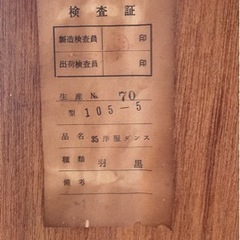 検査証
製造検査員 印
出荷検査員 印
生産 № 70
型 105-5
品名 35洋服ダンス
種類 羽黒
備考